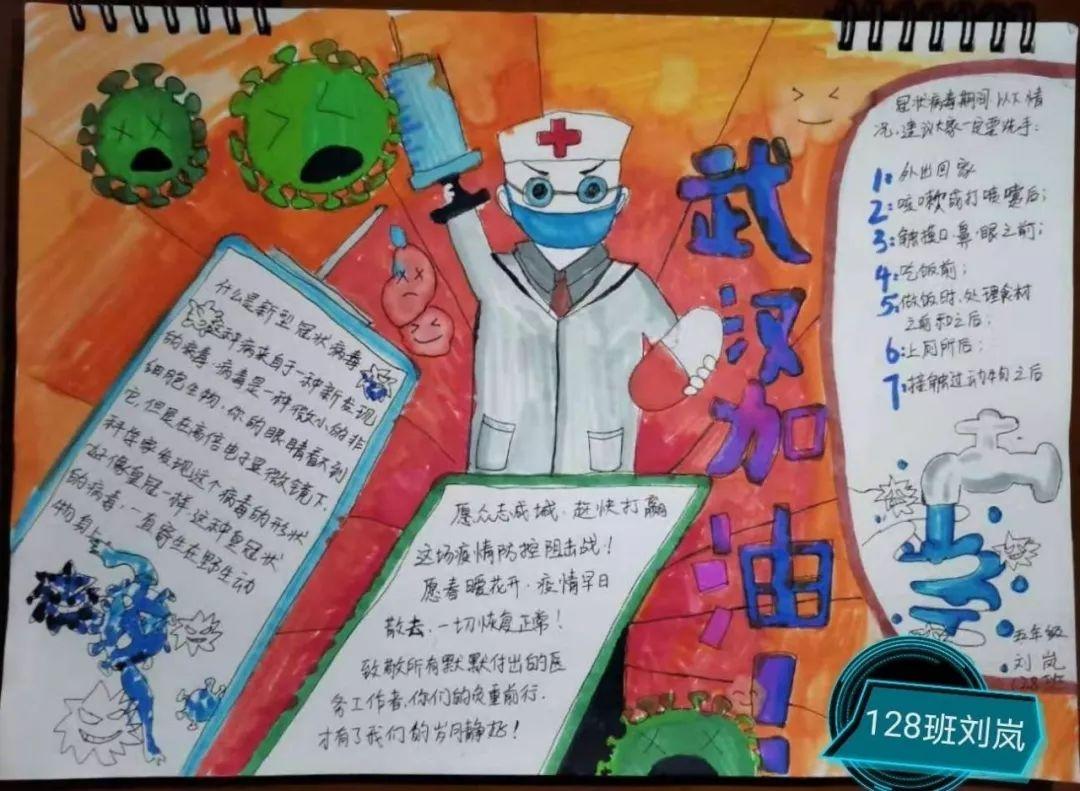 什么是新型冠状病毒
这种病来自于一种新发现
的病毒,病毒是一种微小的非
细胞生物,你的眼睛看不到
它,但是在高倍电子显微镜下,
科学家发现这个病毒的形状
好像皇冠一样,这种皇冠状
的病毒,一直寄生在野生动
物身上
愿众志成城,赶快打赢
这场疫情防控阻击战!
愿春暖花开,疫情早日
散去,一切恢复正常!
致敬所有默默付出的医
务工作者,你们的负重前行,
才有了我们的岁月静好!
武汉加油!
冠状病毒期间以下情
况,建议大家一定要洗手:
1:外出回家
2:咳嗽或打喷嚏后;
3:触摸口、鼻、眼之前;
4:吃饭前;
5:做饭时,处理食材
之前和之后;
6:上厕所后;
7:接触过动物之后
五年级
刘岚
128班
128班刘岚